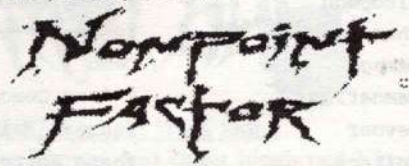 Nonpoint
Factor